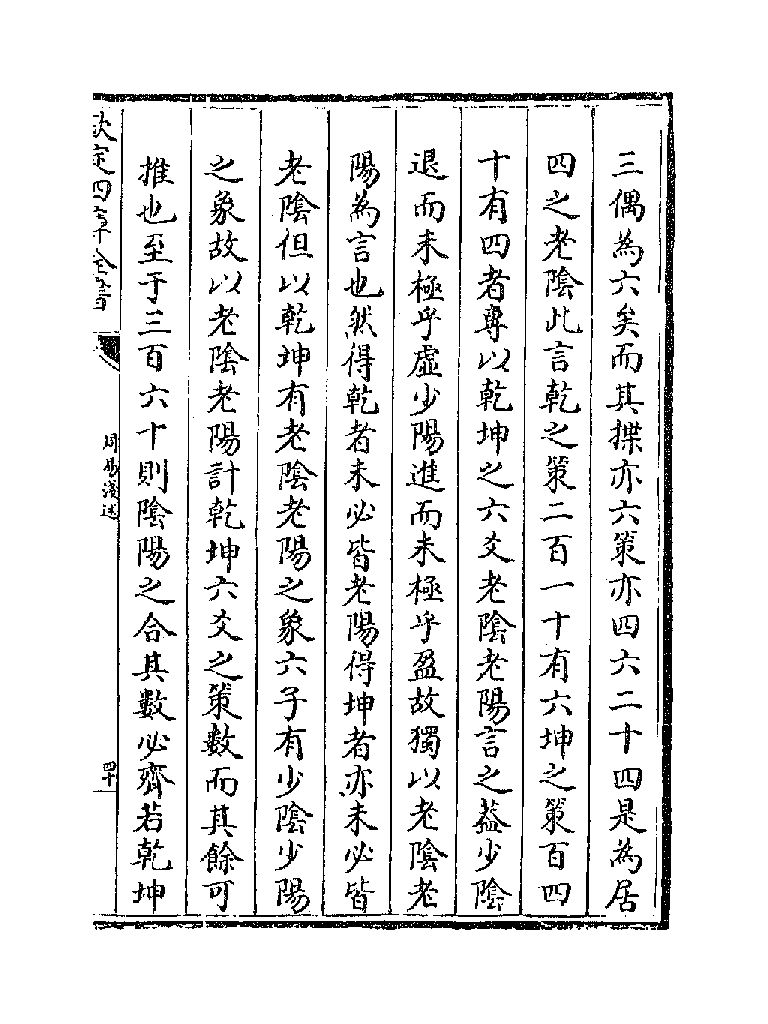 三偶為六矣而其揲亦六策亦四六二十四是為居
四之老陰此言乾之策二百一十有六坤之策百四
十有四者專以乾坤之六爻老陰老陽言之葢少陰
退而未極乎虛少陽進而未極乎盈故獨以老陰老
陽為言也然得乾者未必皆老陽得坤者亦未必皆
老陰但以乾坤有老陰老陽之象六子有少陰少陽
之象故以老陰老陽計乾坤六爻之策數而其餘可
推也至于三百六十則陰陽之合其數必齊若乾坤
欽定四庫全書
周易淺述
四十